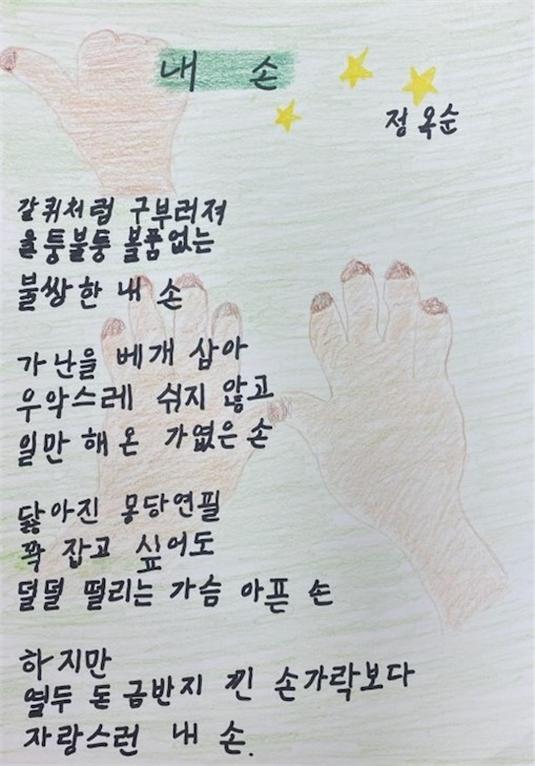 내 손
정옥순
갈퀴처럼 구부러져
울퉁불퉁 볼품없는
불쌍한 내 손
가난을 베개 삼아
우악스레 쉬지 않고
일만 해온 가엾은 손
닳아진 몽당연필
꽉 잡고 싶어도
덜덜 떨리는 가슴 아픈 손
하지만
열두 돈 금반지 낀 손가락보다
자랑스런 내 손.